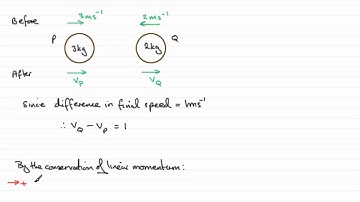 Before 3ms⁻¹ 2ms⁻¹
P 3kg 2kg Q
After V_P V_Q
Since difference in final speed = 1ms⁻¹
∴ V_Q - V_P = 1
By the conservation of linear momentum:
→+